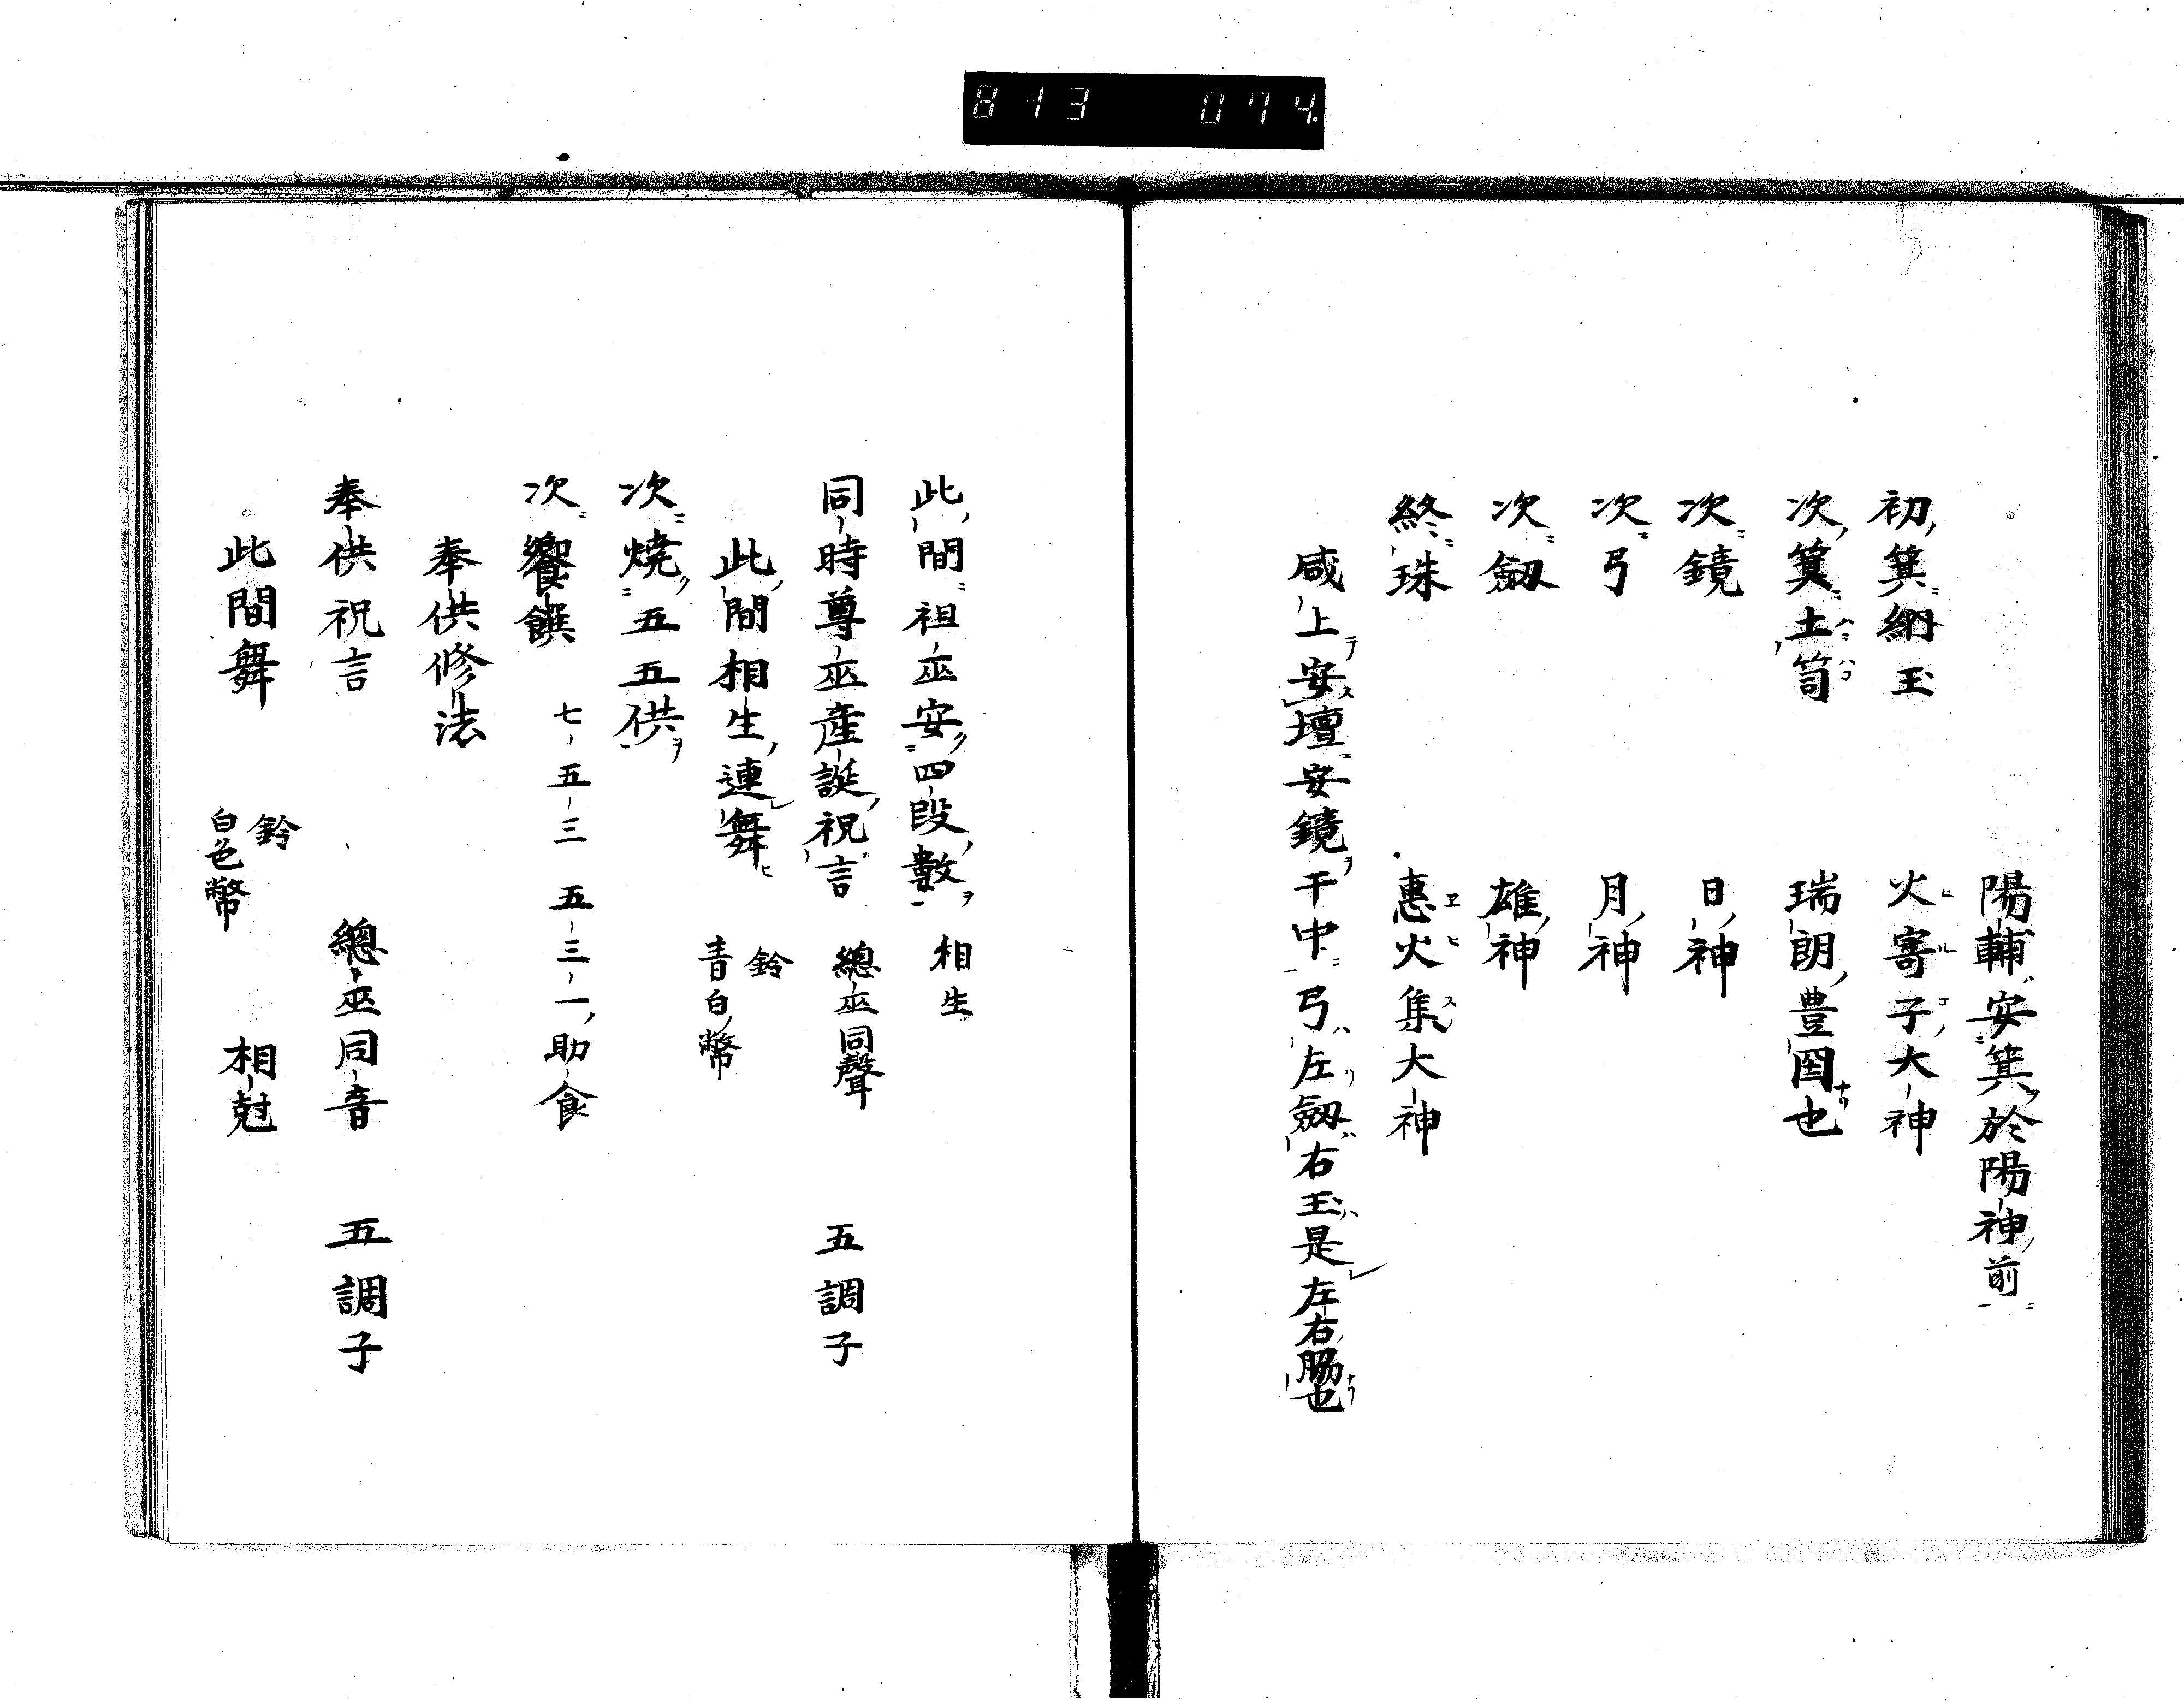 813 074
陽輔安箕於陽神前
初箕納玉 火寄子大神
次箕土笥 瑞朗豊圀也
次鏡 日神
次弓 月神
次劔 雄神
終珠 惠火集大神
咸上安壇安鏡于中弓左劔右玉是左右脇也
此間祖巫安四段數 相生
同時尊巫産誕祝言 總巫同聲 五調子
此間相生連舞 鈴 青白幣
次燒五五供
次饗饌 七五三 五三一助食
奉供修法
奉供祝言 總巫同音 五調子
此間舞 鈴 白色幣 相尅